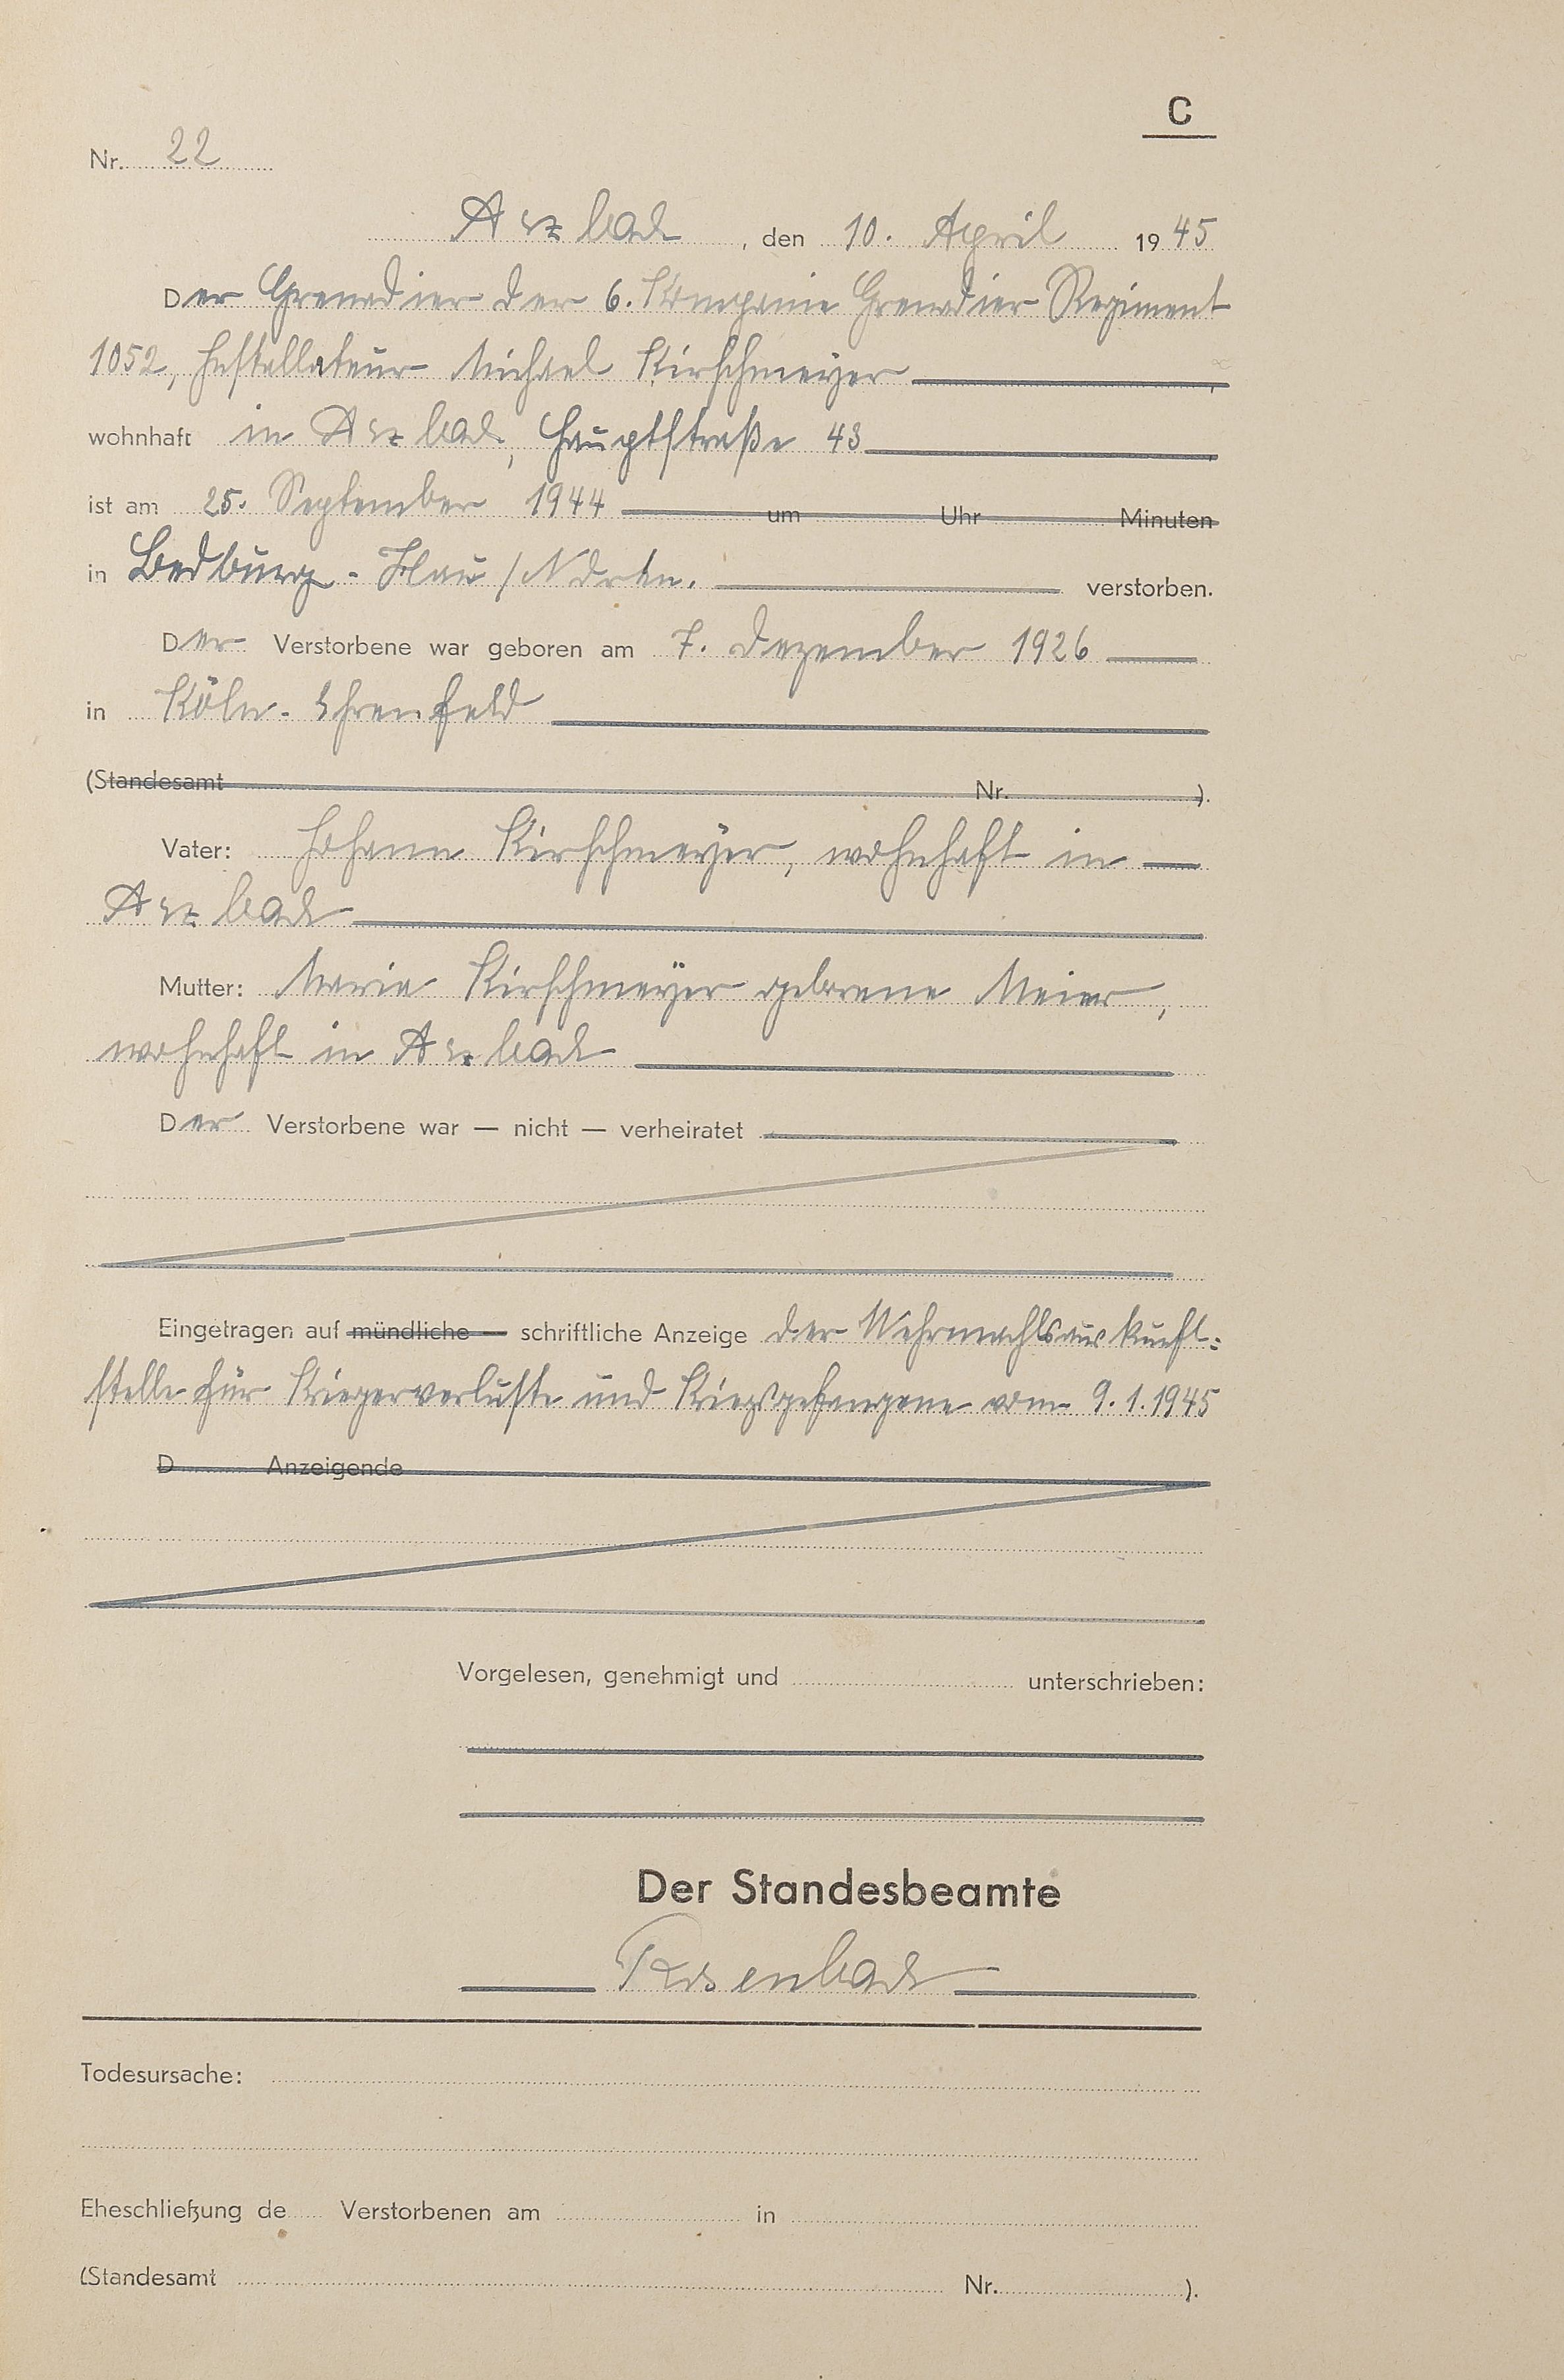 C
Nr. 22
Arzbach, den 10. April 1945
Der Grenadier der 6. Kompanie Grenadier Regiment
1052, Installateur Michael Kirschmeyer
wohnhaft in Arzbach, Hauptstraße 43
ist am 25. September 1944 um Uhr Minuten
in Bedburg-Hau / Ndrhn. verstorben.
Der Verstorbene war geboren am 7. Dezember 1926
in Köln-Ehrenfeld
(Standesamt Nr. ).
Vater: Johann Kirschmeyer, wohnhaft in
Arzbach
Mutter: Maria Kirschmeyer geborene Meier,
wohnhaft in Arzbach
Der Verstorbene war — nicht — verheiratet
Eingetragen auf mündliche — schriftliche Anzeige der Wehrmachtsauskunft-
stelle für Kriegerverluste und Kriegsgefangene vom 9.1.1945
D Anzeigende
Vorgelesen, genehmigt und unterschrieben:
Der Standesbeamte
Rosenbach
Todesursache:
Eheschließung de Verstorbenen am in
(Standesamt Nr. ).